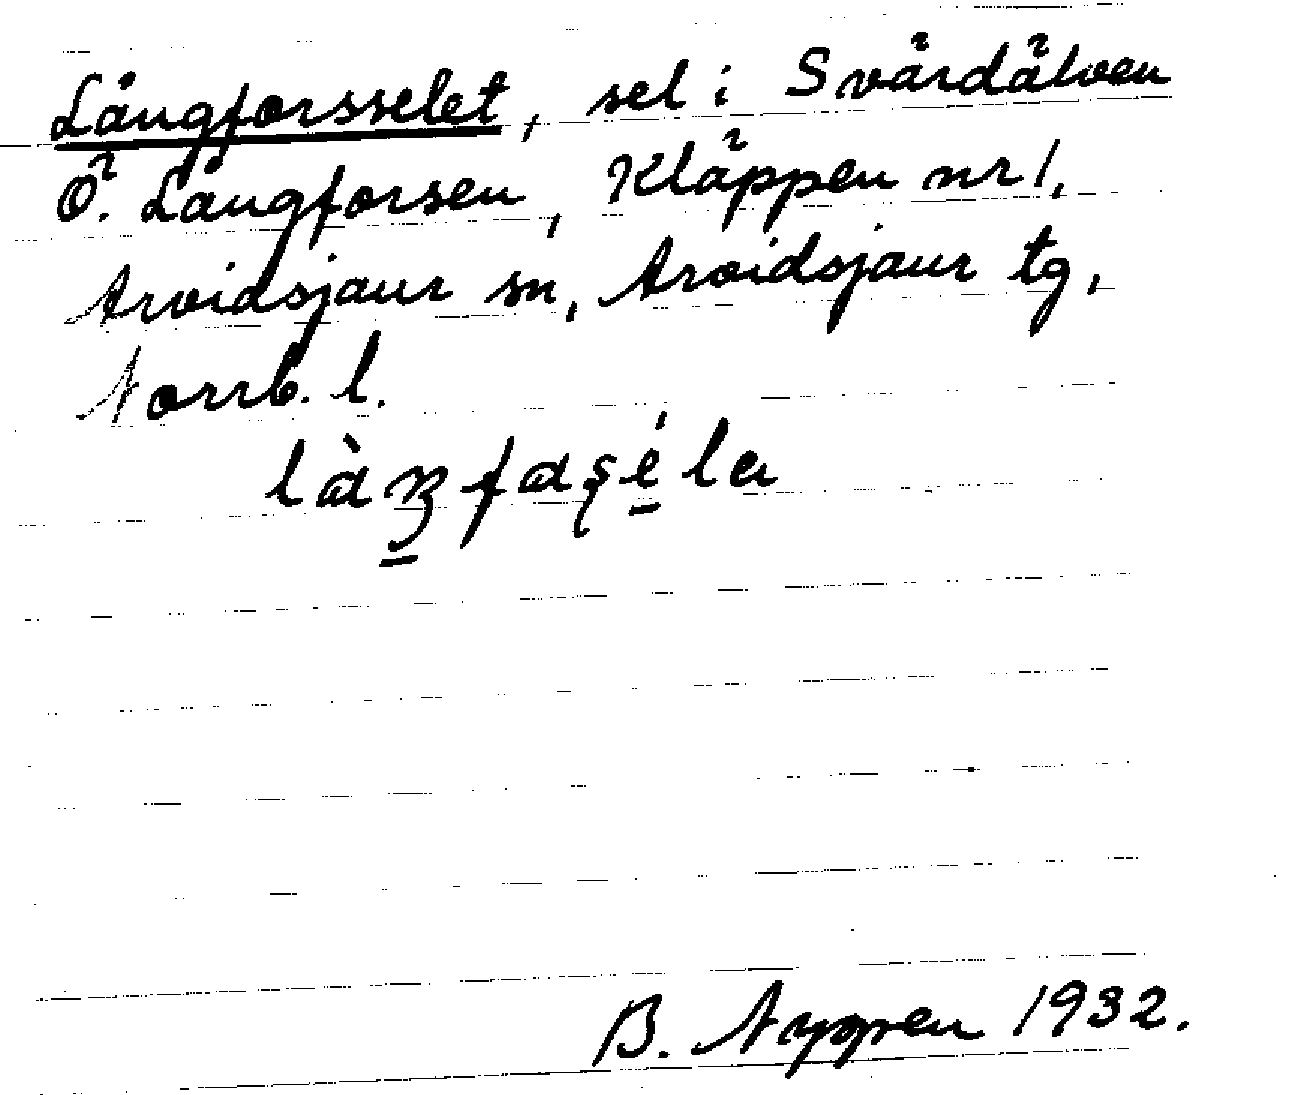 Långforsselet, sel i Svärdälven
Ö. Långforsen, Kläppen nr 1,
Arvidsjaur sn, Arvidsjaur tg,
Norrb. l.
B. Nyppen 1932.